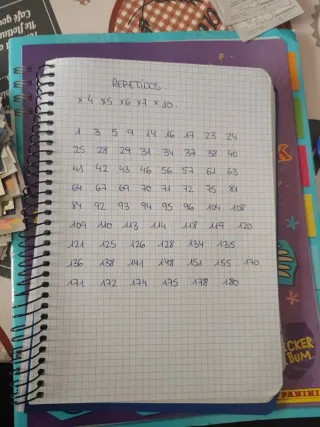 REPETIDOS
x4 x5 x6 x7 x10.
1 3 5 9 14 16 17 23 24
25 28 29 31 34 37 38 40
41 42 43 46 56 57 61 63
64 67 69 70 71 72 75 81
84 92 93 94 95 96 104 108
109 110 113 114 118 119 120
121 125 126 128 134 135
136 138 141 148 151 155 170
171 172 174 175 178 180
PANINI